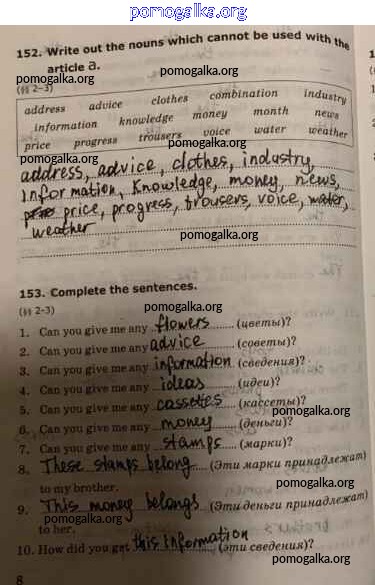 pomogalka.org
152. Write out the nouns which cannot be used with the
article a.
pomogalka.org
(§§ 2-3)
address advice clothes combination industry
information knowledge money month news
price progress trousers voice water weather
pomogalka.org
address, advice, clothes, industry,
Information, Knowledge, money, news,
price, progress, trousers, voice, water,
weather
pomogalka.org
153. Complete the sentences.
(§§ 2-3)
pomogalka.org
1. Can you give me any flowers (цветы)?
2. Can you give me any advice (советы)?
pomogalka.org
3. Can you give me any information (сведения)?
4. Can you give me any ideas (идеи)?
5. Can you give me any cassetes (кассеты)?
pomogalka.org
6. Can you give me any money (деньги)?
7. Can you give me any stamps (марки)?
pomogalka.org
8. These stamps belong (Эти марки принадлежат)
to my brother.
pomogalka.org
9. This money belongs (Эти деньги принадлежат)
pomogalka.org
to her.
10. How did you get this Information (эти сведения)?
pomogalka.org
8
pomogalka.org